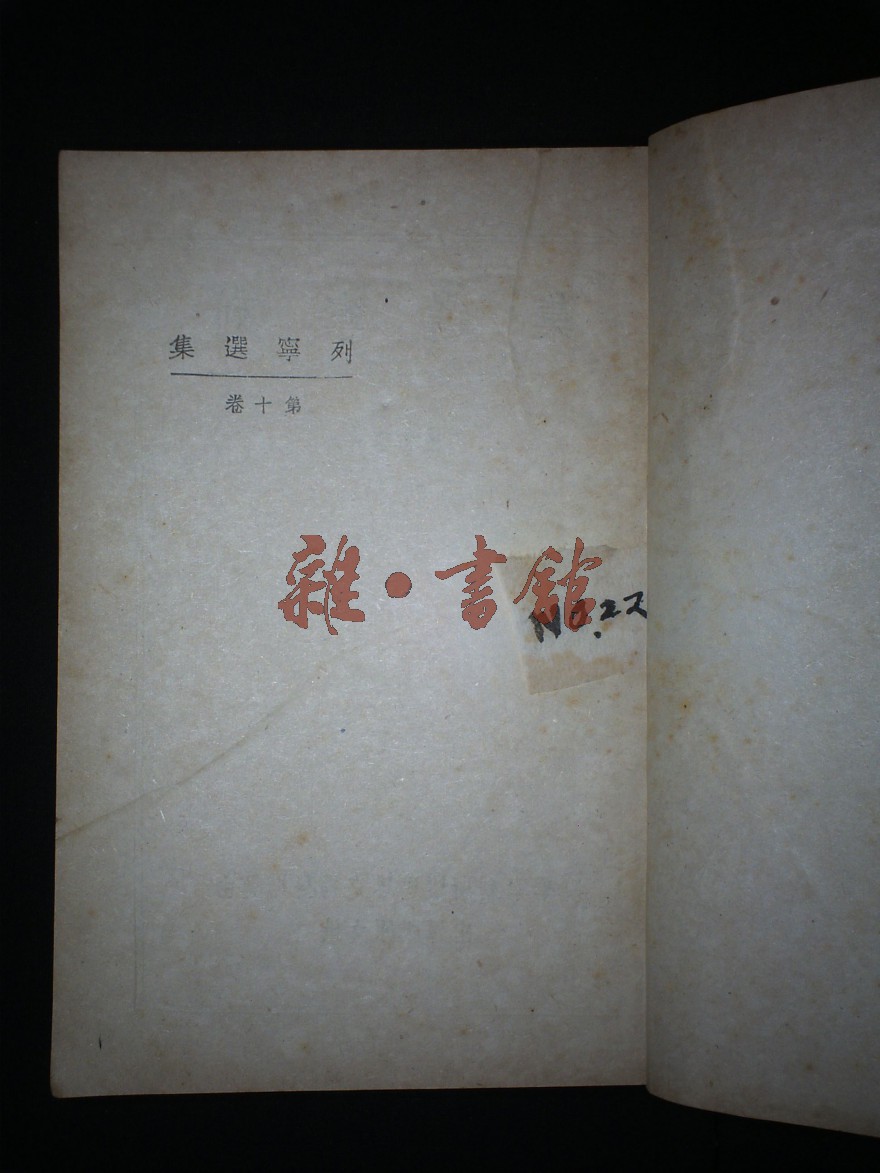 列寧選集
第十卷
雜·書館
No.22